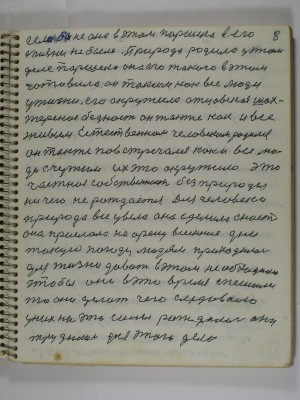 8
дела бы не она в этом парнишка в его
жизни не было. Природа родила у этом
деле парнишка она его такого в этом
поставила, он таким как все люди
у жизни, его окружила отцовская шах-
терская бедность он также как и все
живым Естественном человеком родился
он также повстречался как и все лю-
ди с чужим их это окружило Это
частная собственность без природы
ничего не рождается Для человека
природа все цвела она сделала
она прислала на арену весенние дни
такую погоду, людям приходилося
для жизни давать в этом необходимо
чтобы они в это время спешили
то они делают чего следовало
у них на это силы рождалося они
трудилися для этого дела